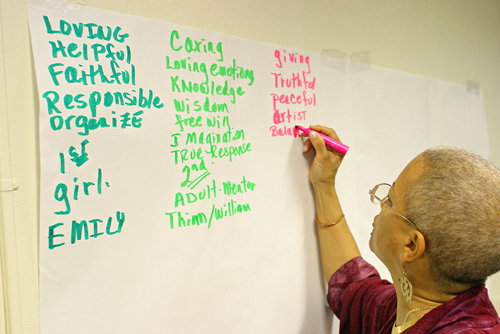 LOVING
Helpful
Faithful
Responsible
ORGANIZE
1st
girl.
EMILY
Caring
Loving emotions
Knowledge
Wisdom
free will
IMagination
TRUE Response
2nd
ADULT-Mentor
William
giving
Truthful
peaceful
artist